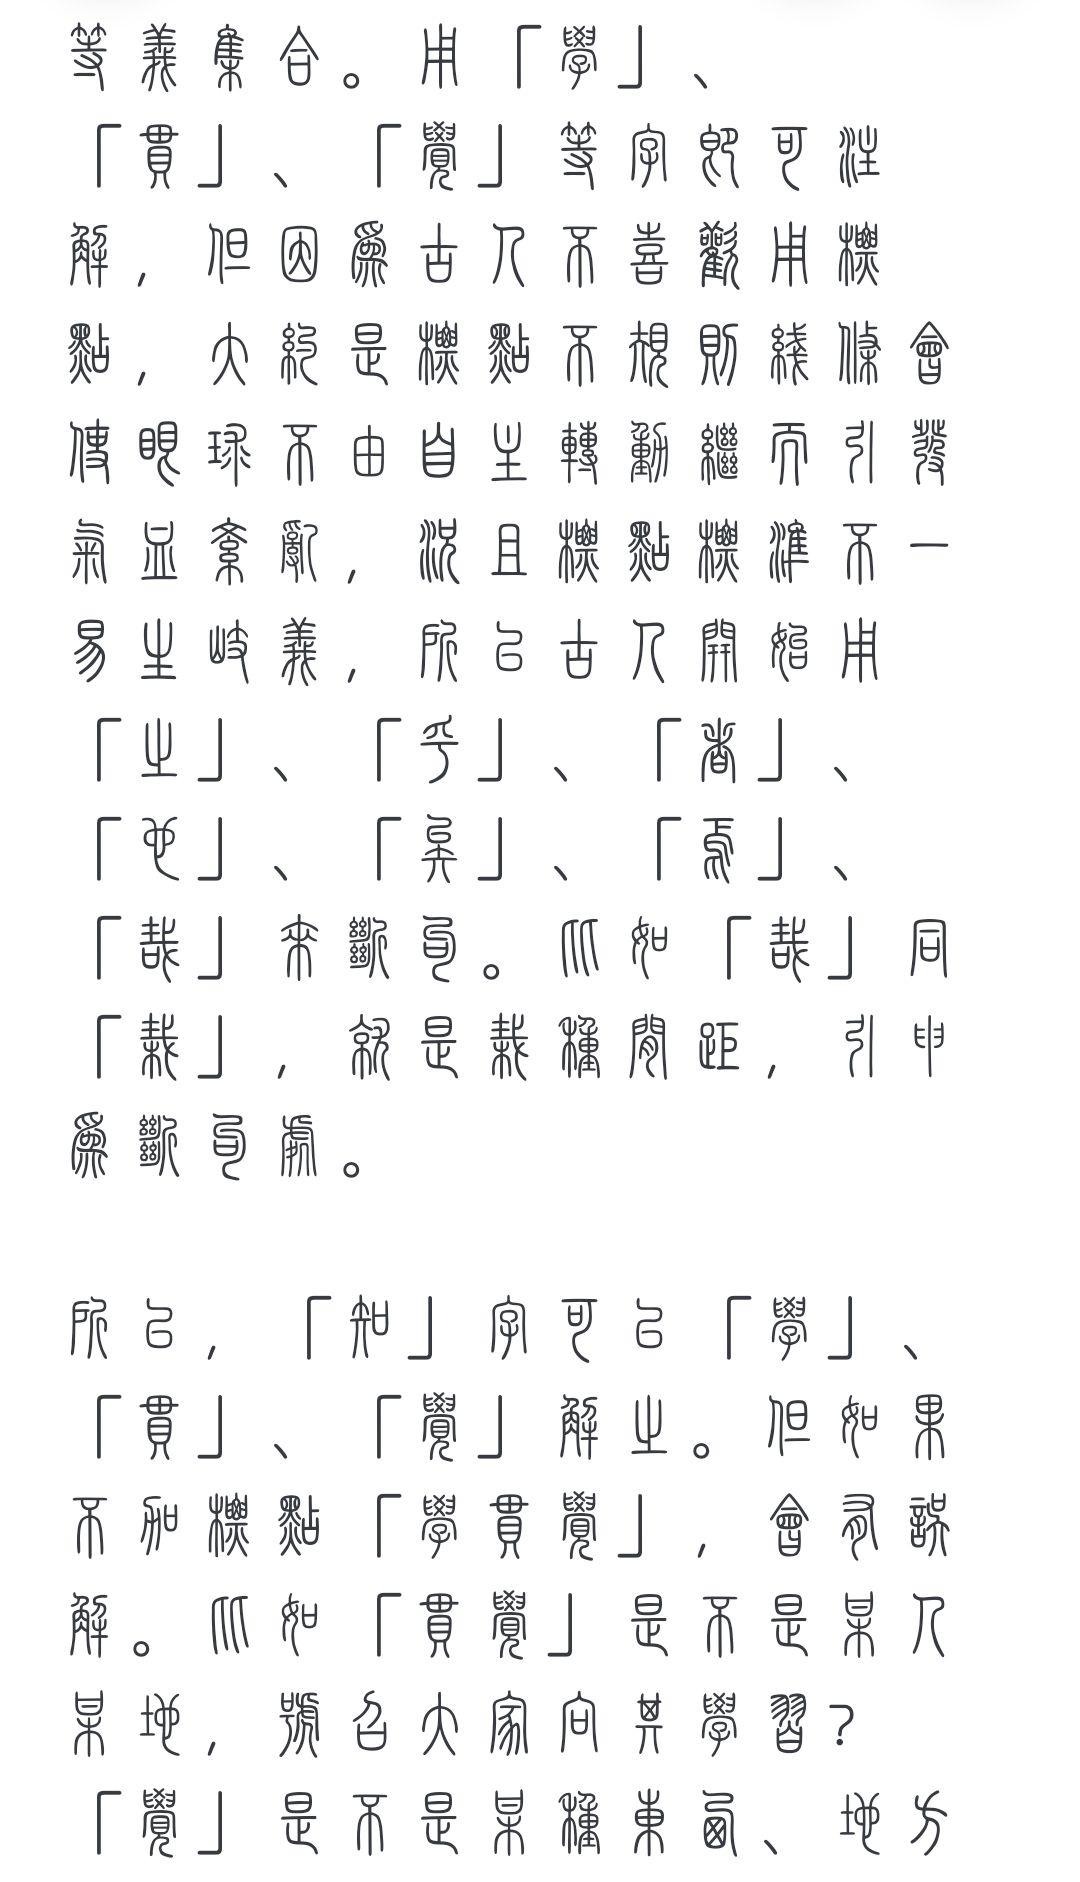 等義集合。用「學」、
「貫」、「覺」等字即可注
解，但因為古人不喜歡用標
點，大約是標點不規則線條會
使眼球不由自主轉動繼而引發
氣血紊亂，況且標點標準不一
易生歧義，所以古人開始用
「之」、「乎」、「者」、
「也」、「矣」、「焉」、
「哉」來斷句。比如「哉」同
「栽」，就是栽種間距，引申
為斷句處。
所以，「知」字可以「學」、
「貫」、「覺」解之。但如果
不加標點「學貫覺」，會有誤
解。比如「貫覺」是不是某人
某地，號召大家向其學習？
「覺」是不是某種東西、地方